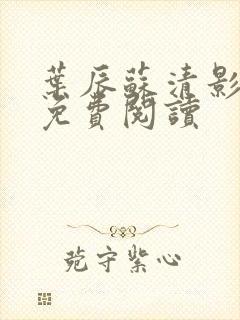 葉辰蘇清影
免費閱讀
菀守紫心